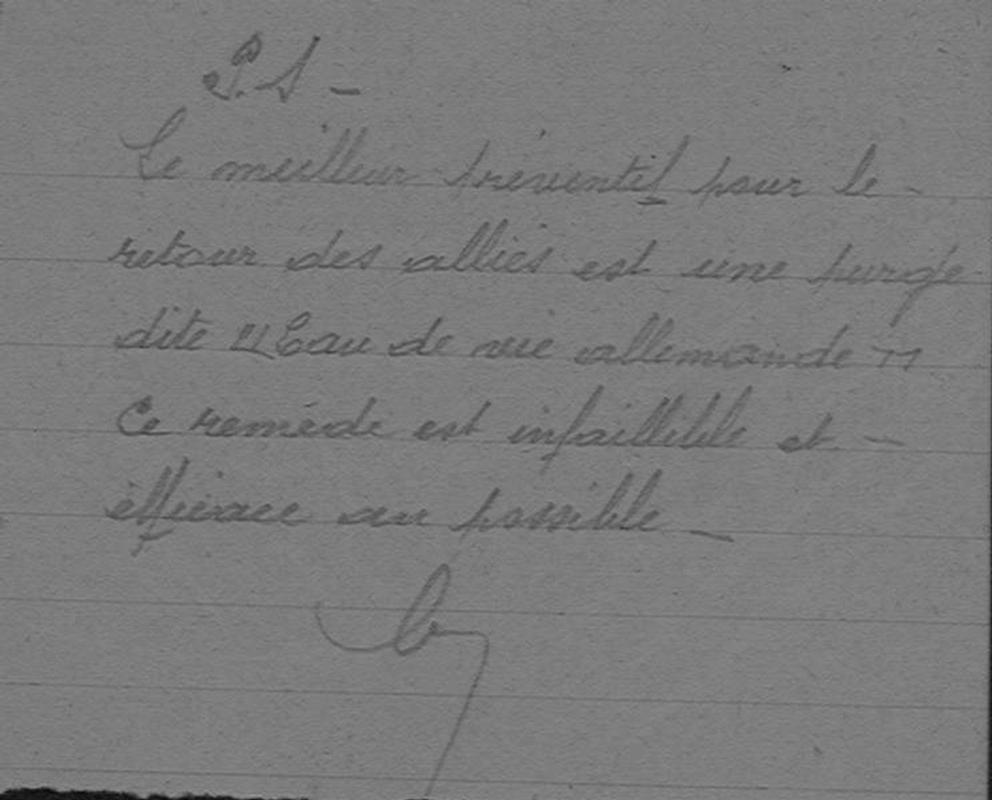 P.S -
Le meilleur préventif pour le -
retour des alliés est une purge
dite "Eau de vie allemande"
Ce remède est infaillible et -
éfficace au possible -